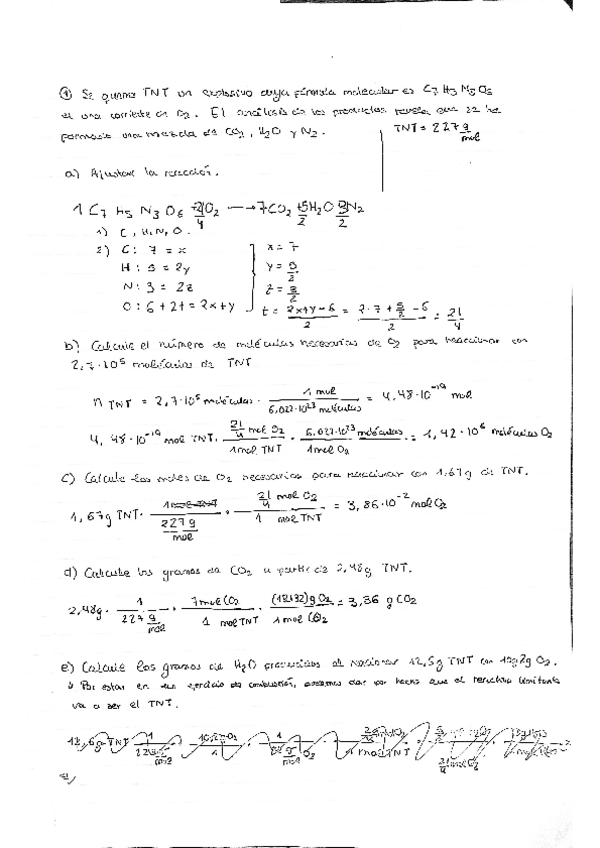 ① Se quema TNT un explosivo cuya fórmula molecular es C7 H5 N3 O6
en una corriente de O2. El análisis de los productos revela que se ha
formado una mezcla de CO2, H2O y N2.
TNT = 227 g/mol
a) Ajustar la reacción.
1 C7 H5 N3 O6 + 21/4 O2 → 7CO2 + 5/2 H2O 3/2 N2
1) C, H, N, O.
2) C: 7 = x
H: 5 = 2y
N: 3 = 2z
O: 6 + 2t = 2x+y
x = 7
y = 5/2
z = 3/2
t = (2x+y-6)/2 = (2·7 + 5/2 - 6)/2 = 21/4
b) Calcule el número de moléculas necesarias de O2 para reaccionar con
2,7·10⁵ moléculas de TNT
n TNT = 2,7·10⁵ moléculas · 1 mol / 6,022·10²³ moléculas = 4,48·10⁻¹⁹ mol
4,48·10⁻¹⁹ mol TNT · 21/4 mol O2 / 1 mol TNT · 6,022·10²³ moléculas / 1 mol O2 = 1,42·10⁶ moléculas O2
c) Calcule los moles de O2 necesarios para reaccionar con 1,67g de TNT.
1,67g TNT · 1 mol TNT / 227 g/mol · 21/4 mol O2 / 1 mol TNT = 3,86·10⁻² mol O2
d) Calcule los gramos de CO2 a partir de 2,48g TNT.
2,48g · 1 / 227 g/mol · 7 mol CO2 / 1 mol TNT · (12+32)g O2 / 1 mol CO2 = 3,36 g CO2
e) Calcule los gramos de H2O producidos al reaccionar 12,5g TNT con 10,2g O2.
Por estar en un ejercicio de combustión, podemos dar por hecho que el reactivo limitante
va a ser el TNT.